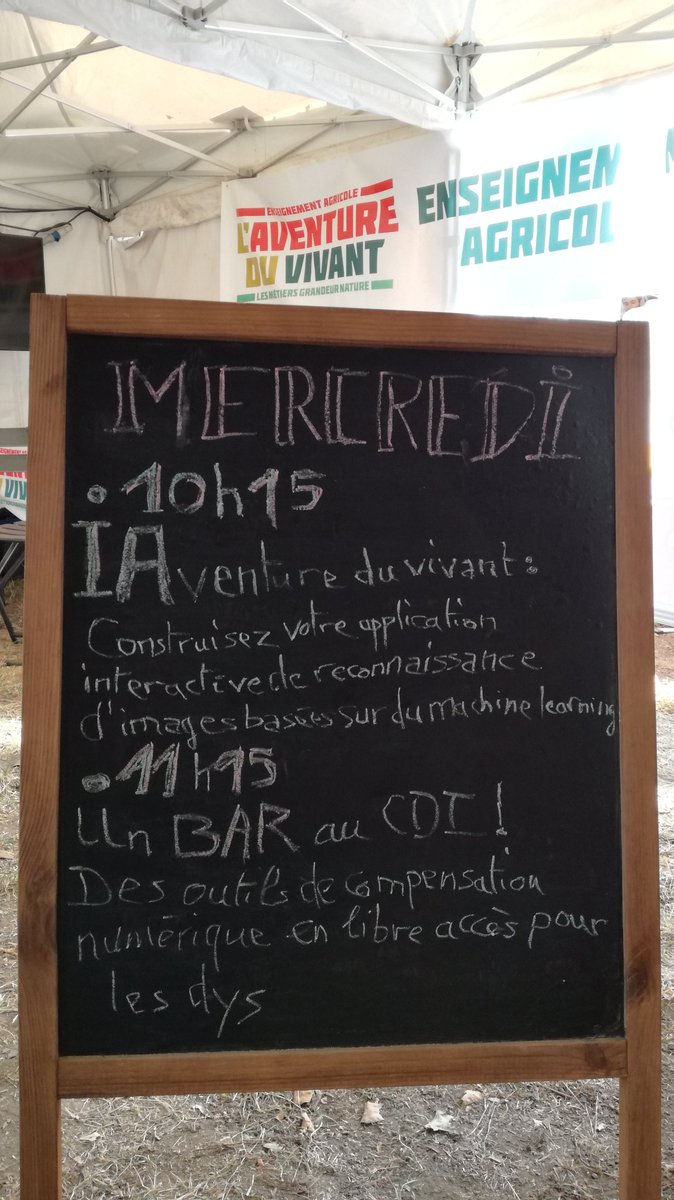 ENSEIGNEMENT AGRICOLE
L'AVENTURE
DU VIVANT
LES MÉTIERS GRANDEUR NATURE
ENSEIGNEM
AGRICOL
MERCREDI
• 10h15
IAventure du vivant :
Construisez votre application
interactive de reconnaissance
d'images basées sur du machine learning
• 11h15
Un BAR au CDI !
Des outils de compensation
numérique en libre accès pour
les dys